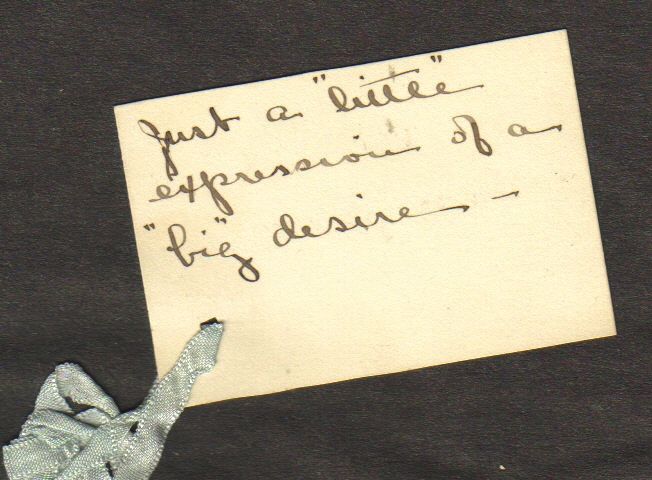 Just a "little"
expression of a
"big" desire —